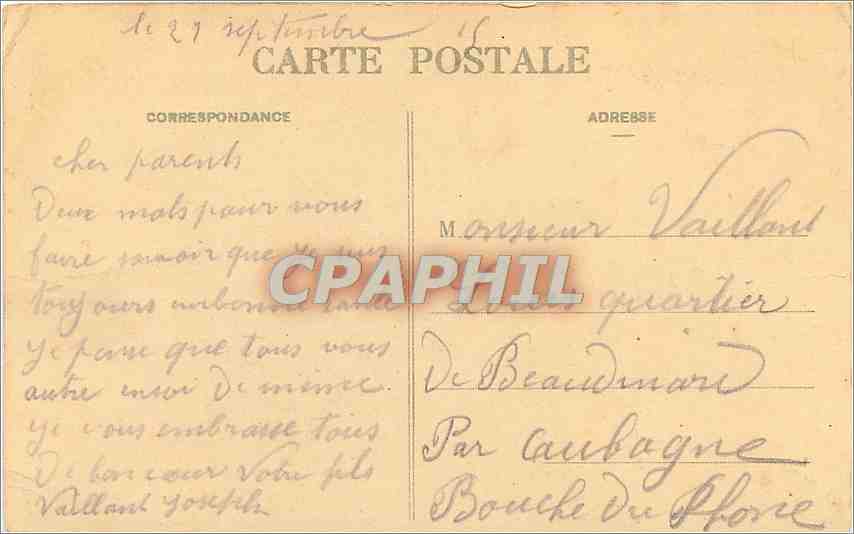 le 29 septembre 15
CARTE POSTALE
CORRESPONDANCE
cher parents
Deux mots pour vous
faire savoir que je suis
toujours en bonne santé
Je pense que tous vous
autre en soi De même
Je vous embrasse tous
De bon cœur Votre fils
Vaillant Joseph
ADRESSE
Monsieur Vaillant
Louis quartier
De Beaudinard
Par Aubagne
Bouche Du Rhone
CPAPHIL